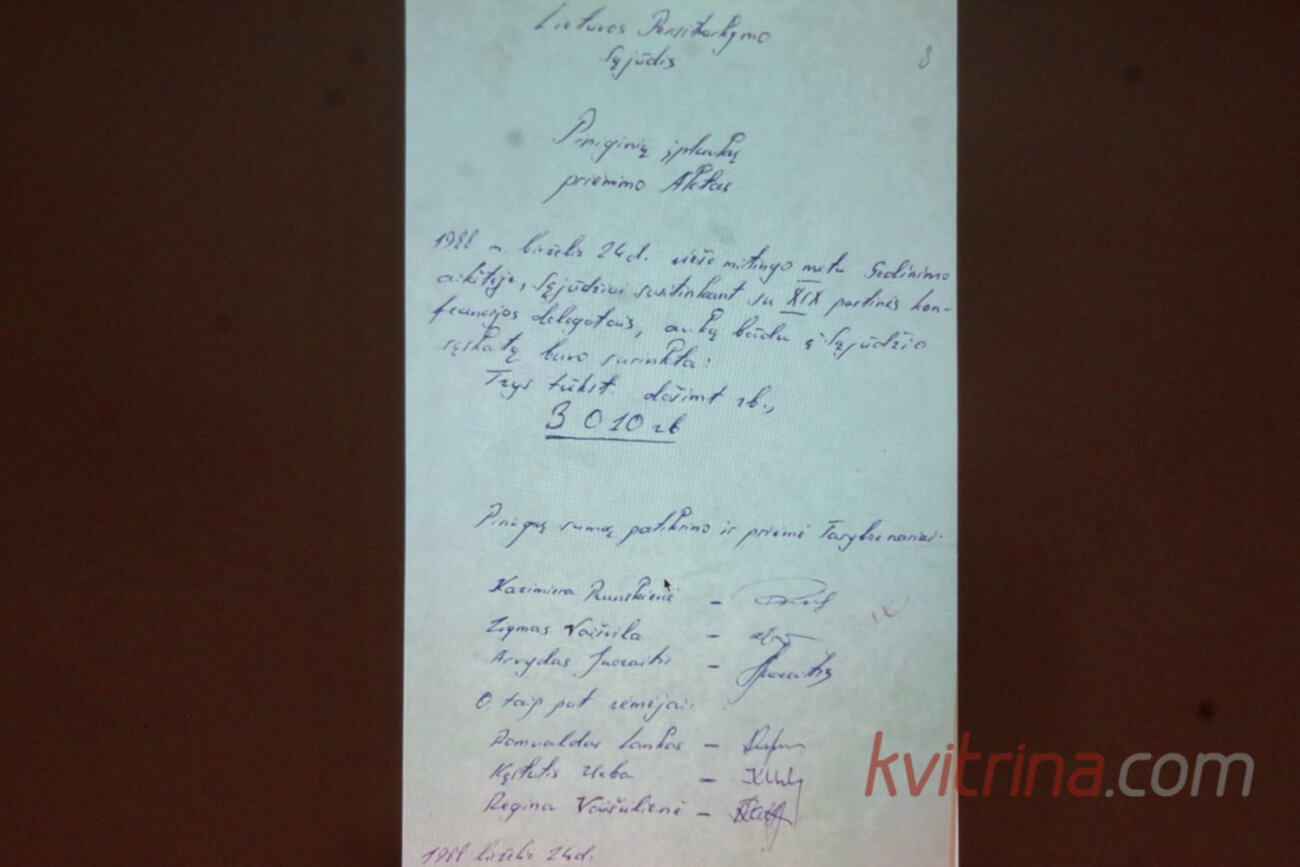 Lietuvos Persitvarkymo
Sąjūdis
3
Piniginių įplaukų
priėmimo Aktas
1988 m. birželio 24 d. viešo mitingo metu Gedimino
aikštėje, Sąjūdžiui susitinkant su XIX partinės kon-
ferencijos delegatais, aukų būdu į Sąjūdžio
sąskaitą buvo surinkta:
Trys tūkst. dešimt rb.,
3 010 rb
Pinigų sumą patikrino ir priėmė Tarybos nariai:
Kazimiera Prunskienė -
Zigmas Vaišvila -
Arvydas Juozaitis - Juozaitis
O taip pat rėmėjai:
Romualdas Lankas -
Kęstutis Urba -
Regina Vaišulienė -
1988 birželio 24 d.
kvitrina.com